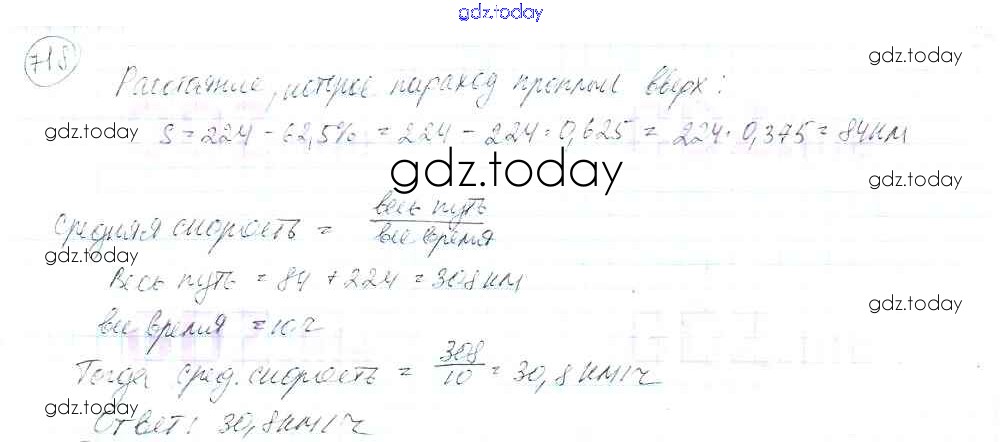 gdz.today
718
gdz.today
Расстояние, которое пароход проплыл вверх:
gdz.today
S = 224 - 62,5% = 224 - 224 · 0,625 = 224 · 0,375 = 84 км
gdz.today
gdz.today
средняя скорость = весь путь / все время
gdz.today
Весь путь = 84 + 224 = 308 км
gdz.today
все время = 10 ч
Тогда сред. скорость = 308/10 = 30,8 км/ч
gdz.today
Ответ: 30,8 км/ч